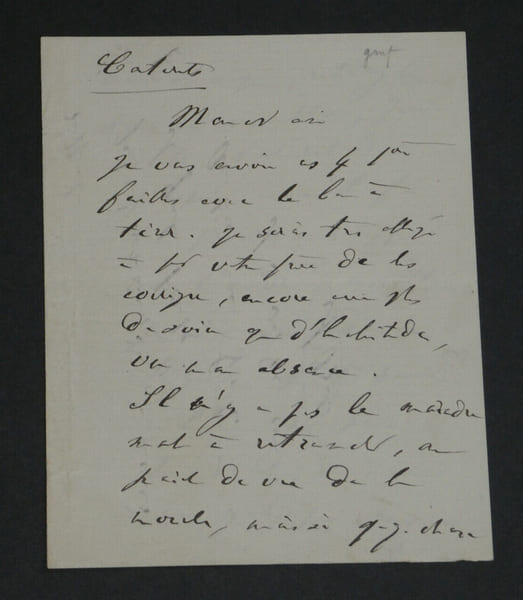 Mon ami
Je vous envoie ces 4
feuilles avec le bon à
tirer. Je serais très obligé
à votre de les
corriger, encore avec plus
de soin que d'habitude,
vu mon absence.
Il n'y a pas le moindre
mot à retrancher, au
point de vue de la
morale, mais si q.q. chose